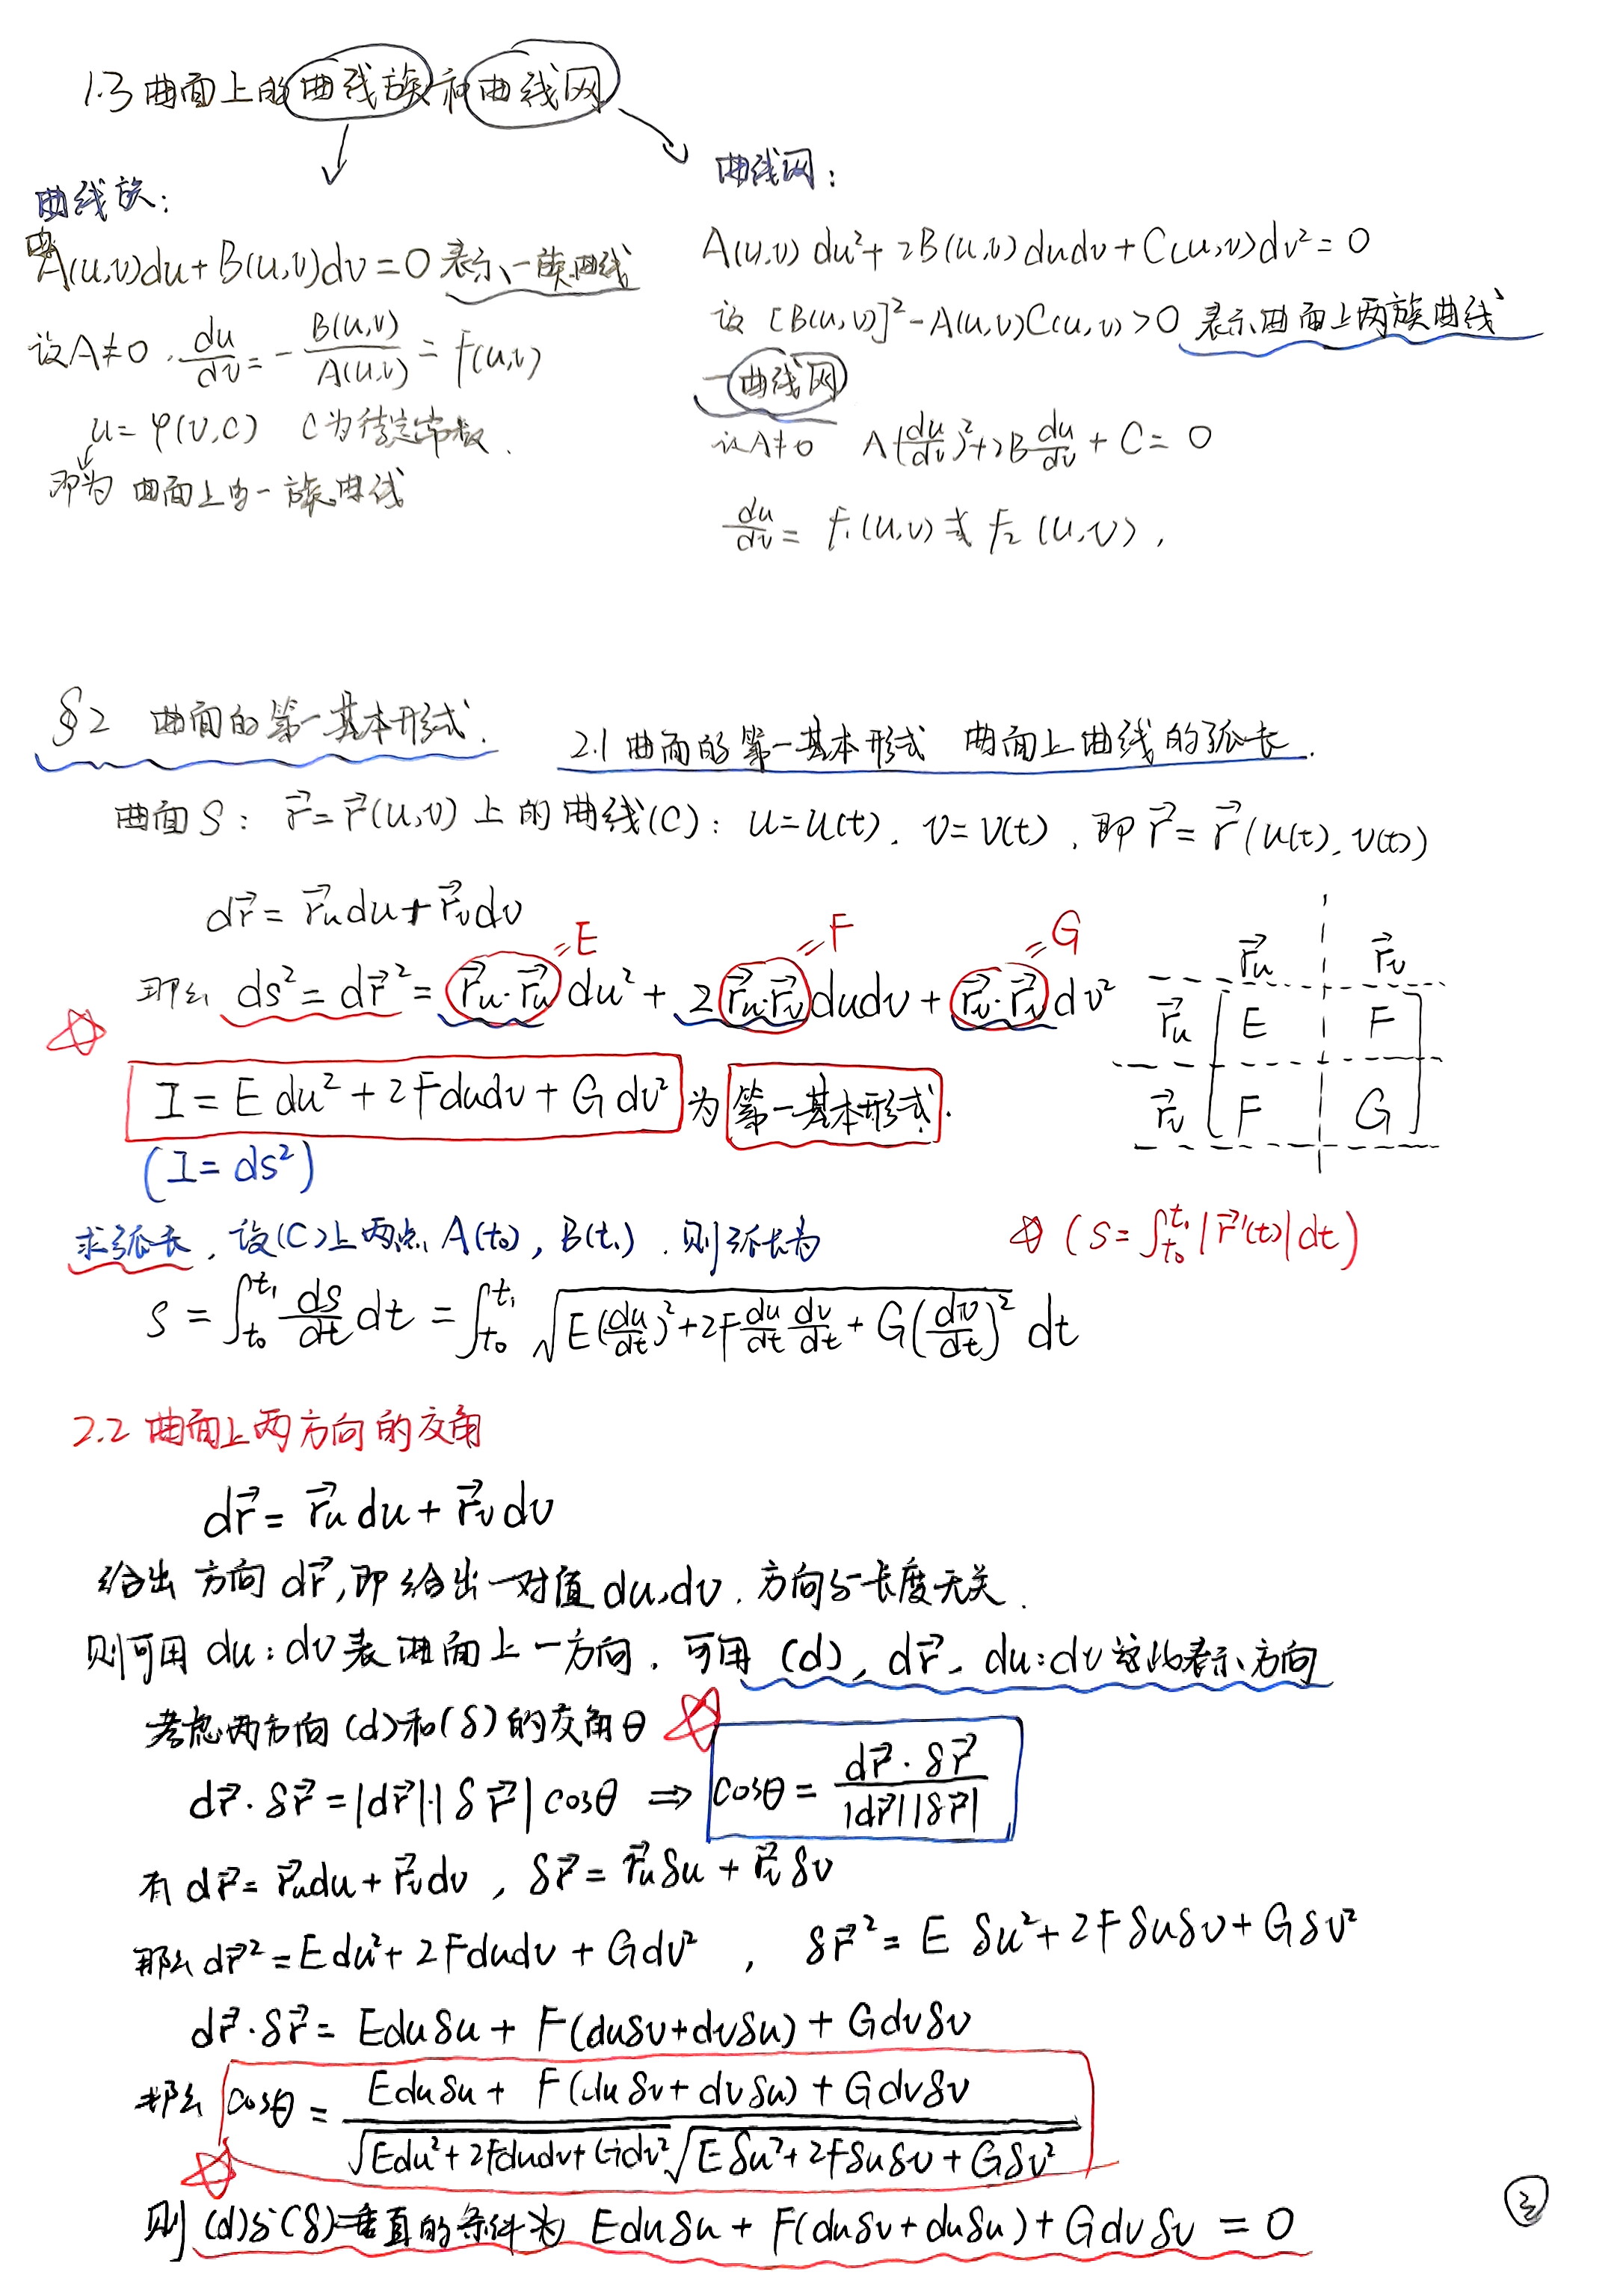 1.3 曲面上的曲线族和曲线网
曲线族：
A(u,v)du+B(u,v)dv=0 表示一族曲线
设A≠0. du/dv = -B(u,v)/A(u,v) = F(u,v)
u=φ(v,c) C为待定常数.
即为 曲面上的一族曲线
曲线网：
A(u,v)du²+2B(u,v)dudv+C(u,v)dv²=0
设 [B(u,v)]²-A(u,v)C(u,v)>0 表示曲面上两族曲线
—曲线网
设A≠0 A(du/dv)²+2B du/dv + C=0
du/dv = F₁(u,v)或F₂(u,v),
§2 曲面的第一基本形式.
2.1 曲面的第一基本形式 曲面上曲线的弧长.
曲面S: r⃗=r⃗(u,v)上的曲线(C): u=u(t), v=v(t), 即r⃗=r⃗(u(t),v(t))
dr⃗=r⃗ᵤdu+r⃗ᵥdv
=E =F =G
那么 ds²=dr⃗²=r⃗ᵤ·r⃗ᵤdu²+2r⃗ᵤ·r⃗ᵥdudv+r⃗ᵥ·r⃗ᵥdv²
I=Edu²+2Fdudv+Gdv² 为 第一基本形式.
(I=ds²)
r⃗ᵤ r⃗ᵥ
r⃗ᵤ [E F]
r⃗ᵥ [F G]
求弧长, 设(C)上两点A(t₀), B(t₁). 则弧长为
(S=∫_{t₀}^{t₁}|r⃗'(t)|dt)
S=∫_{t₀}^{t₁} ds/dt dt=∫_{t₀}^{t₁} √(E(du/dt)²+2F du/dt dv/dt+G(dv/dt)²) dt
2.2 曲面上两方向的交角
dr⃗=r⃗ᵤdu+r⃗ᵥdv
给出 方向dr⃗,即给出一对值du,dv. 方向与长度无关.
则可用du:dv表曲面上一方向. 可用 (d), dr⃗, du:dv 这些表示方向
考虑两方向(d)和(δ)的交角θ
dr⃗·δr⃗=|dr⃗|·|δr⃗|cosθ ⇒ cosθ=dr⃗·δr⃗/|dr⃗||δr⃗|
有dr⃗=r⃗ᵤdu+r⃗ᵥdv, δr⃗=r⃗ᵤδu+r⃗ᵥδv
那么dr⃗²=Edu²+2Fdudv+Gdv², δr⃗²=Eδu²+2Fδuδv+Gδv²
dr⃗·δr⃗=Eduδu+F(duδv+dvδu)+Gdvδv
那么 cosθ=(Eduδu+F(duδv+dvδu)+Gdvδv)/(√(Edu²+2Fdudv+Gdv²)√(Eδu²+2Fδuδv+Gδv²))
则 (d)与(δ)垂直的条件为 Eduδu+F(duδv+duδu)+Gdvδv=0